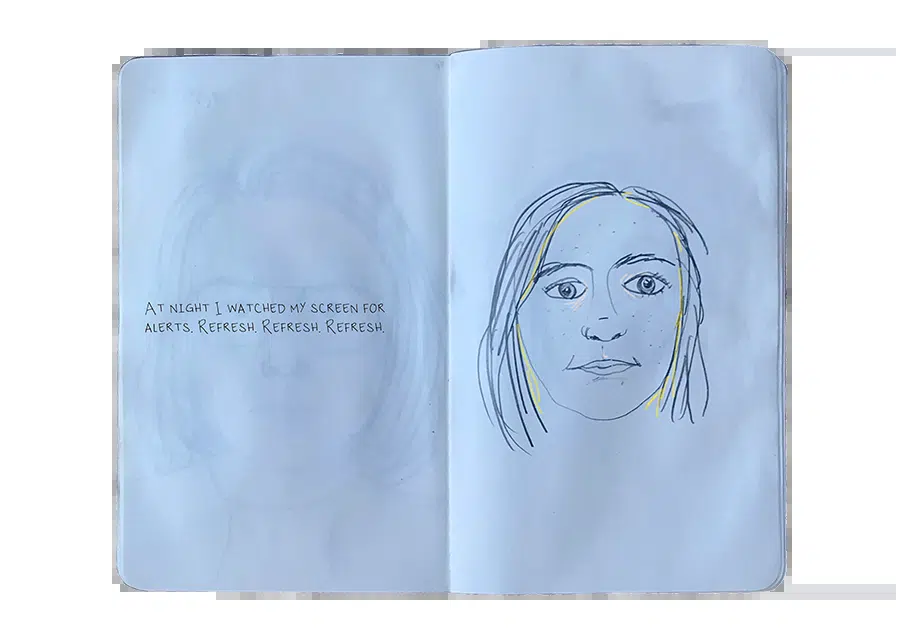 AT NIGHT I WATCHED MY SCREEN FOR
ALERTS. REFRESH. REFRESH. REFRESH.